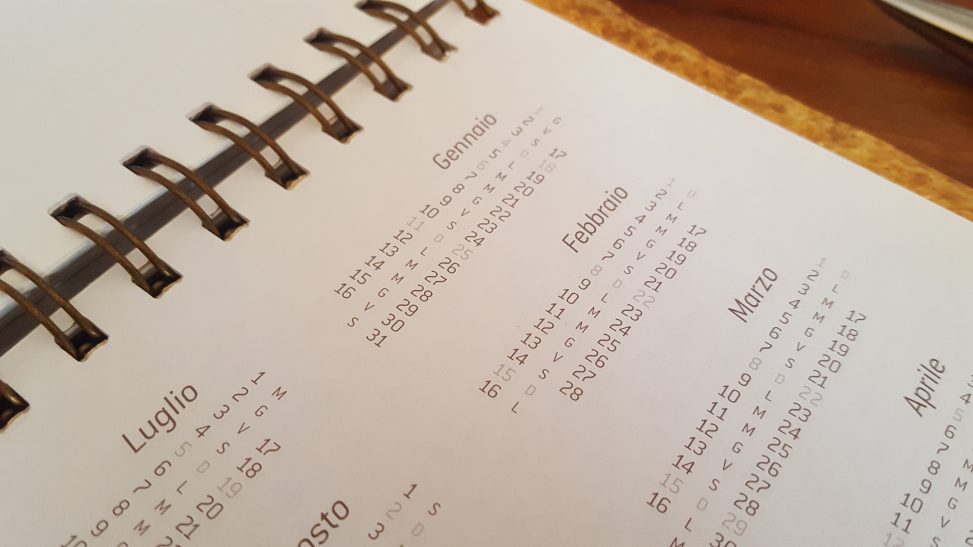 Gennaio
1 G
2 V
3 S 17
4 D 18
5 L 19
6 M 20
7 M 21
8 G 22
9 V 23
10 S 24
11 D 25
12 L 26
13 M 27
14 M 28
15 G 29
16 V 30
S 31
Febbraio
1 D
2 L
3 M 17
4 M 18
5 G 19
6 V 20
7 S 21
8 D 22
9 L 23
10 M 24
11 M 25
12 G 26
13 V 27
14 S 28
15 D
16 L
Marzo
1 D
2 L
3 M 17
4 M 18
5 G 19
6 V 20
7 S 21
8 D 22
9 L 23
10 M 24
11 M 25
12 G 26
13 V 27
14 S 28
15 D 29
16 L 30
M
Aprile
4
5
6
7 M
8 M
9 G
10 V
11 S
12
Luglio
1 M
2 G
3 V 17
4 S 18
5 D 19
6 L 20
7 M 21
8 M
9
10
osto
1 S
2 D
3